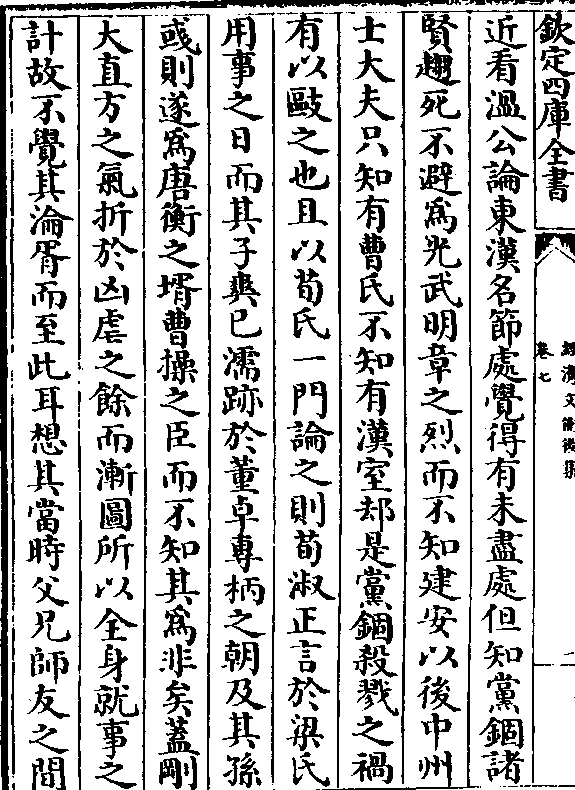 欽定四庫全書
經濟文衡後集
卷七
近看溫公論東漢名節處覺得有未盡處但知黨錮諸
賢趨死不避為光武明章之烈而不知建安以後中州
士大夫只知有曹氏不知有漢室却是黨錮殺戮之禍
有以敺之也且以荀氏一門論之則荀淑正言於梁氏
用事之日而其子爽已濡跡於董卓專柄之朝及其孫
彧則遂為唐衡之壻曹操之臣而不知其為非矣蓋剛
大直方之氣折於凶虐之餘而漸圖所以全身就事之
計故不覺其淪胥而至此耳想其當時父兄師友之間